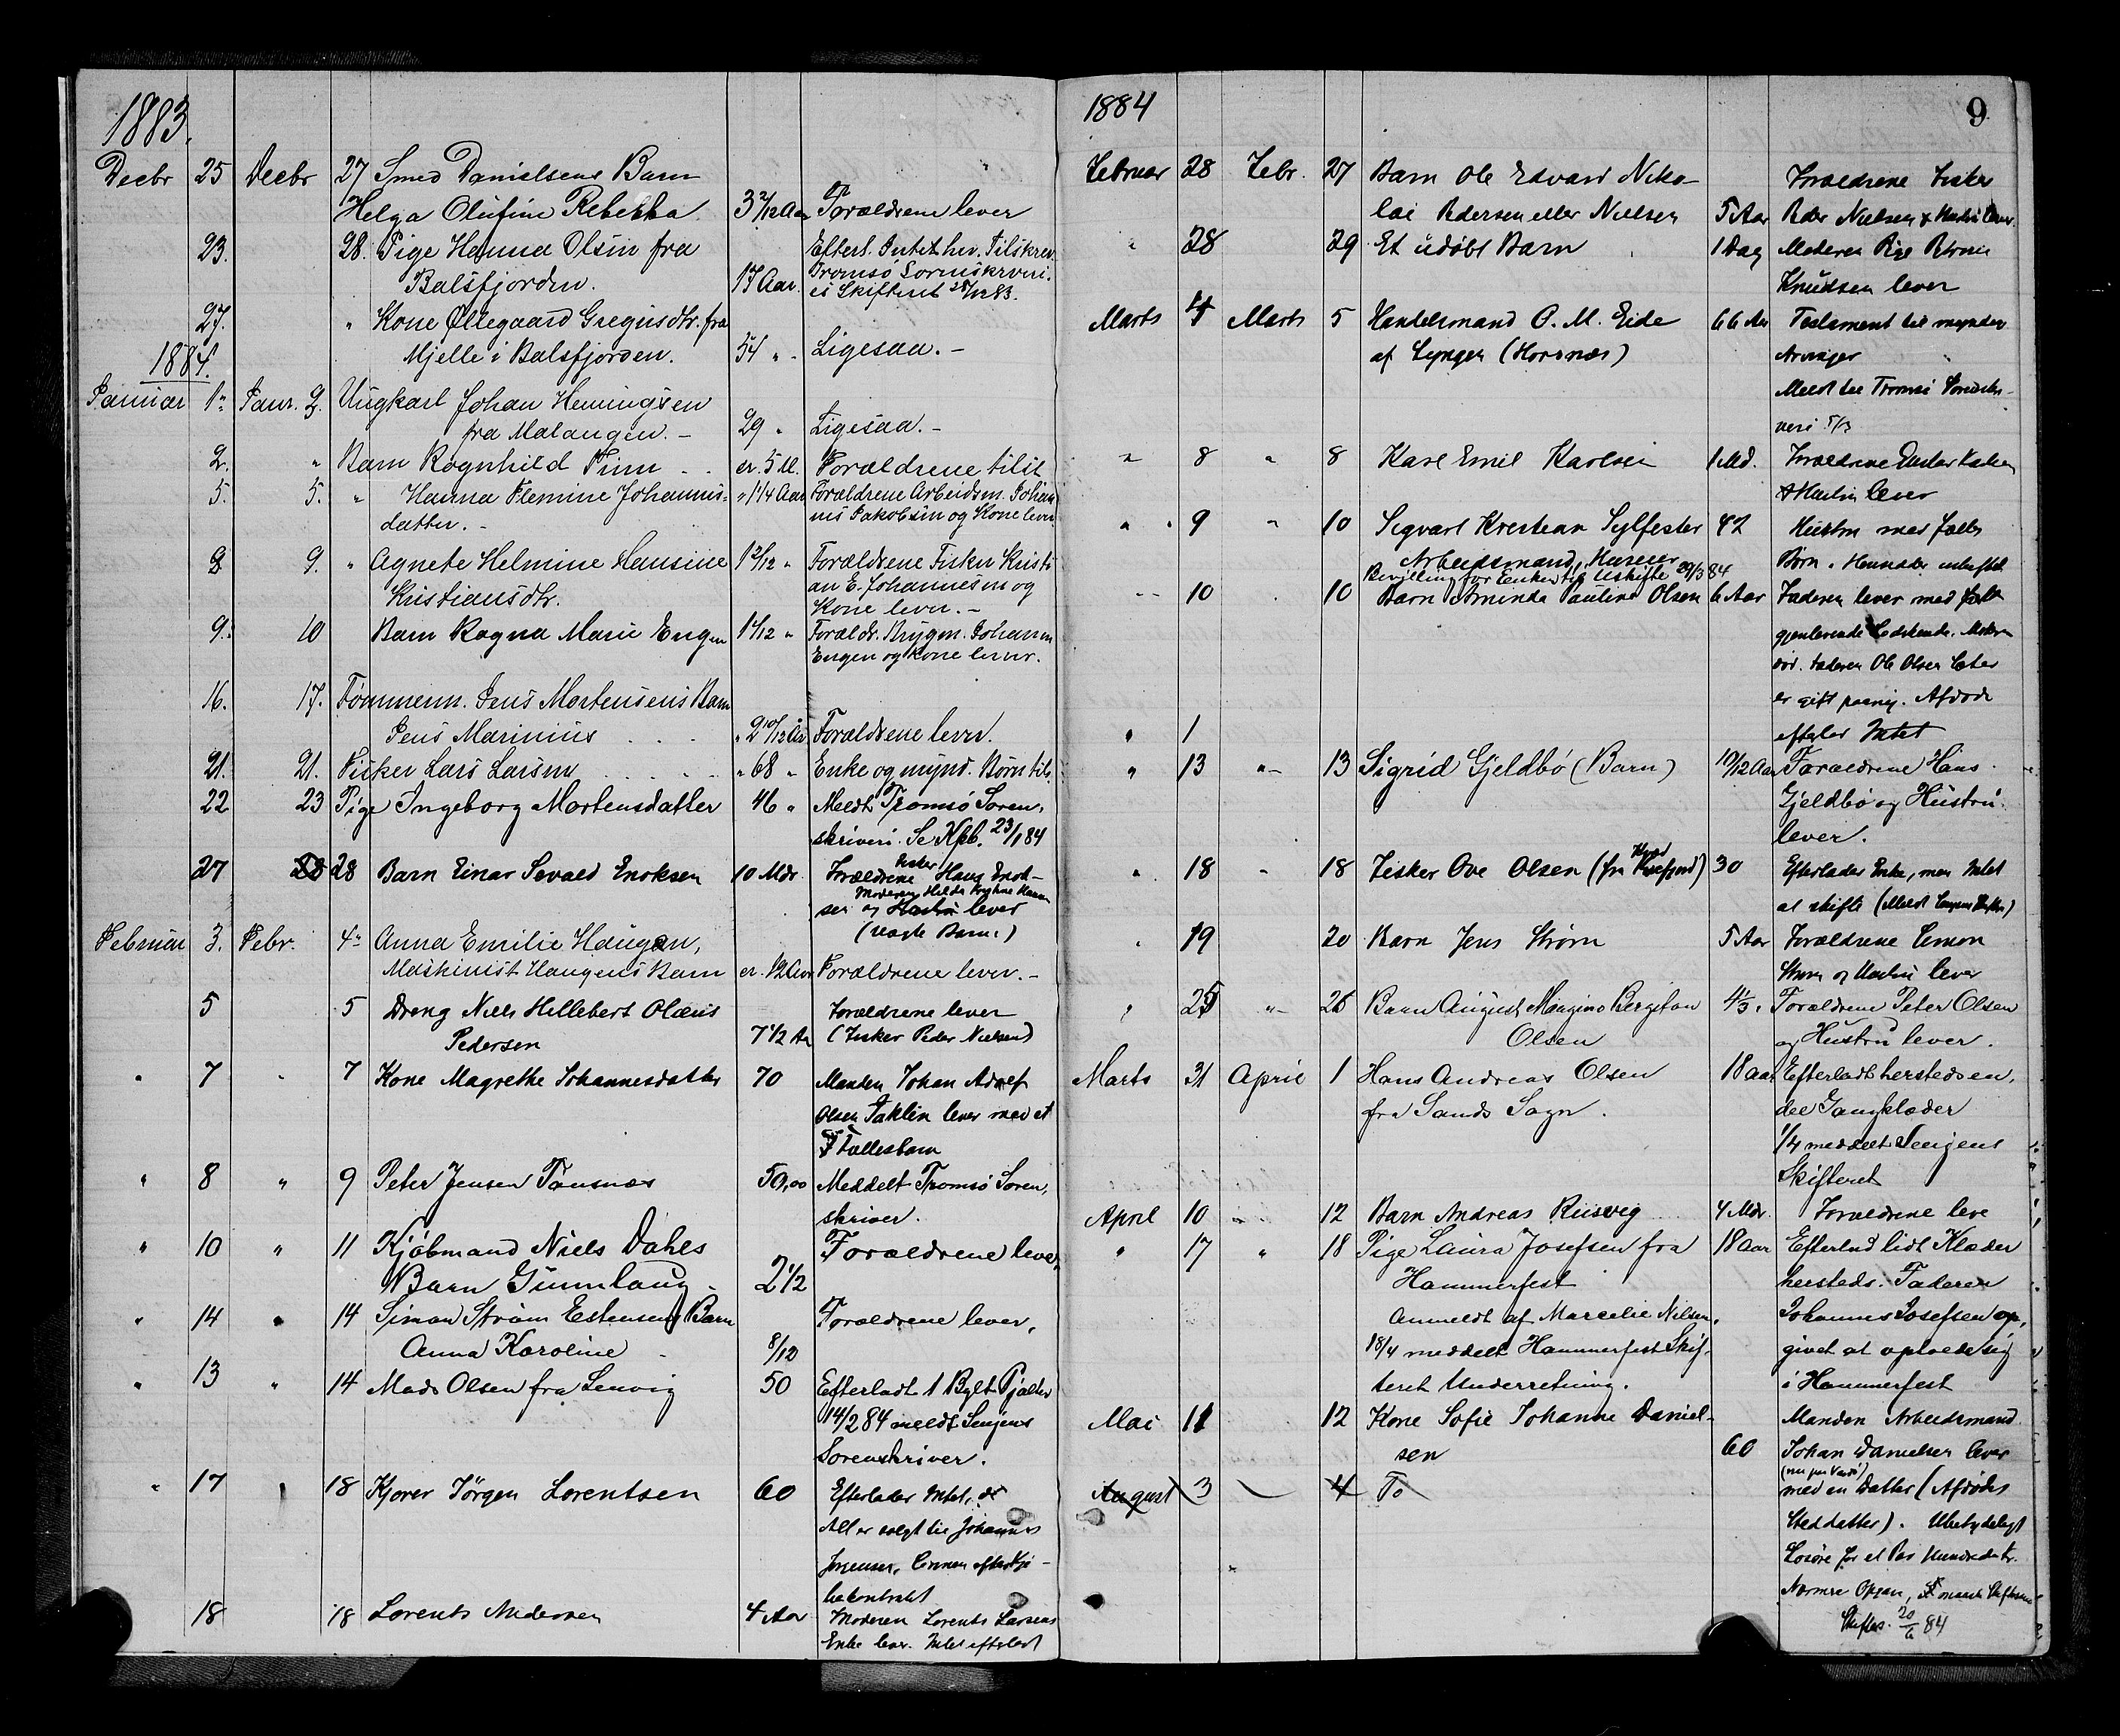 1883.
Decbr 25 Decbr 27 Smed Danielsens Barn
Helga Olufine Rebekka 3 2/12 Aar Forældrene lever
23. 28. Pige Hanna Olsen fra Efterl. Intet her. Tilskrev
Balsfjorden. 17 Aar. Tromsö Sorenskriveri.
es Skifteret 28/12 83.
27. " Kone Øllegaard Gregusdtr. fra
Mjelle i Balsfjorden. 54 " Ligesaa. -
1884.
Januar 1" Janr. 2. Ungkarl Johan Hemingsen
fra Malangen. - 29 " Ligesaa. -
2. " Barn Ragnhild Finn - . er. 5 M. Forældrene tilst
5. 5. " Hanna Flemine Johannis- " 1 1/4 Aar Forældrene Arbeidsm. Johan
datter. - nes Jakobsen og Kone lever
8 9. " Agnete Helmine Hansine 1 2/12 " Forældrene Fisker Kristi
Kristiansdtr. an E. Johannesen og
Kone lever. -
9. 10 Barn Ragna Marie Engen 1 1/12 " Forældr. Brygm. Johan
Engen og Kone lever.
16. 17. Tømmerm. Jens Mortensens Barn
Jens Marinius . . . " 2 10/12 Aar Forældrene lever.
21. 21. Fisker Lars Larsen . . . " 68 " Enke og mynd. Børn tils.
22 23 Pige Ingeborg Mortensdatter 46 " Meldt Tromsö Soren,
skriveri. Se Kpb. 23/1 84
27 28 28 Barn Einar Sevald Enoksen 10 Mdr. Forældrene Fisker Hans Enok-
Moderen Helda
sen og Hustru lever
(uægte Barn.)
Februar 3. Febr. 4" Anna Emilie Haugen,
Maskinist Haugens Barn er. 1/2 Aar Forældrene lever. -
5 5 Dreng Niels Hillebert Olæus Forældrene lever
Pedersen 7 1/2 Aar (Fisker Peder Nielsen)
" 7 " 7 Kone Magrethe Johannesdatter 70 Manden Johan Adolf
Olsen Taklin lever med et
Fællesbarn
" 8 " 9 Peter Jensen Tønsnæs 50,00 Meddelt Tromsö Soren,
skriver.
" 10 " 11 Kjöbmand Niels Dahls Forældrene lever,
Barn Gunnlaug - 2 1/2
" 14 " 14 Simon Ström Estensens Barn Forældrene lever,
Anna Karoline - 8/12
" 13 " 14 Mads Olsen fra Lenvig 50 Efterladt 1 Bylt Pjalter
14/2 84 meldt Senjens
Sorenskriver.
" 17 " 18 Kjører Jörgen Lorentsen 60 Efterlader Intet,
All er solgt til Johannes
Jörgensen,
18 18 Lorents Andersen 4 Aar Moderen Lorents Larsens
Enke lever. Intet efterladt
1884 9
Februar 28 Febr. 27 Barn Ole Edvard Niko- Forældrene Fisker
lai Pedersen eller Nielsen 5 Aar Peder Nielsen & Hustru lever
" 28 29 Et udøbt Barn 1 Dag Moderen Pige Petrine
Knudsen lever
Marts 4 Marts 5 Handelsmand O. M. Eide 66 Aar Testament til myndige
af Lyngen (Horsnæs) Arvinger
Meldt til Tromsö Sorenskri-
veri 5/3
" 8 " 8 Karl Emil Karlsen 1 Md. Forældrene Karlsen
& Hustru lever
" 9 " 10 Segvart Kristian Sylfester 42 Hustru med fælles
Arbeidsmand, Børn.
Bevilling for Enken til Uskifte 29/3 84
" 10 " 10 Barn Aminda Pauline Olsen 6 Aar Faderen lever med
gjenlevende Sødskende. Moder
død. Faderen Ole Olsen
er gift paany. Afdøde
" 1 efterlod Intet
" 13 " 13 Sigrid Gjeldbö (Barn) 10/12 Aar Forældrene Hans
Gjeldbö og Hustru
lever.
" 18 " 18 Fisker Ove Olsen (fra Kvæfjord) 30 Efterlader Enke, men Intet
at skifte
" 19 20 Barn Jens Strøm 5 Aar Forældrene Simon
Strøm og Hustru lever
" 25 " 26 Barn August Mangino Bergiton 4 1/3 " Forældrene Peter Olsen
Olsen og Hustru lever.
Marts 31 April 1 Hans Andreas Olsen 18 aar Efterladt herstedsen,
fra Sands Sogn. del Gangklæder
1/4 meddelt Senjens
Skifteret
April 10 " 12 Barn Andreas Riisveg 4 Mdr. Forældrene leve
" 17 " 18 Pige Laura Josefsen fra 18 Aar Efterlod lidt Klæder
Hammerfest hersteds. Faderen
Anmeldt af Marcelie Nilsen. Johannes Josefsen op,
18/4 meddelt Hammerfest Skif- givet at opholde sig
teret Underretning. i Hammerfest
Mai 11 12 Kone Sofie Johanne Daniel- Manden Arbeidsmand
sen 60 Johan Danielsen lever
(nu paa Vardö)
August 3 4 To med en Datter (Afdødes
Steddatter). Ubetydeligt
Løsøre for et Par Hundrede Kr.
Nærmere Opgav,
Skiftes. 20/6 84